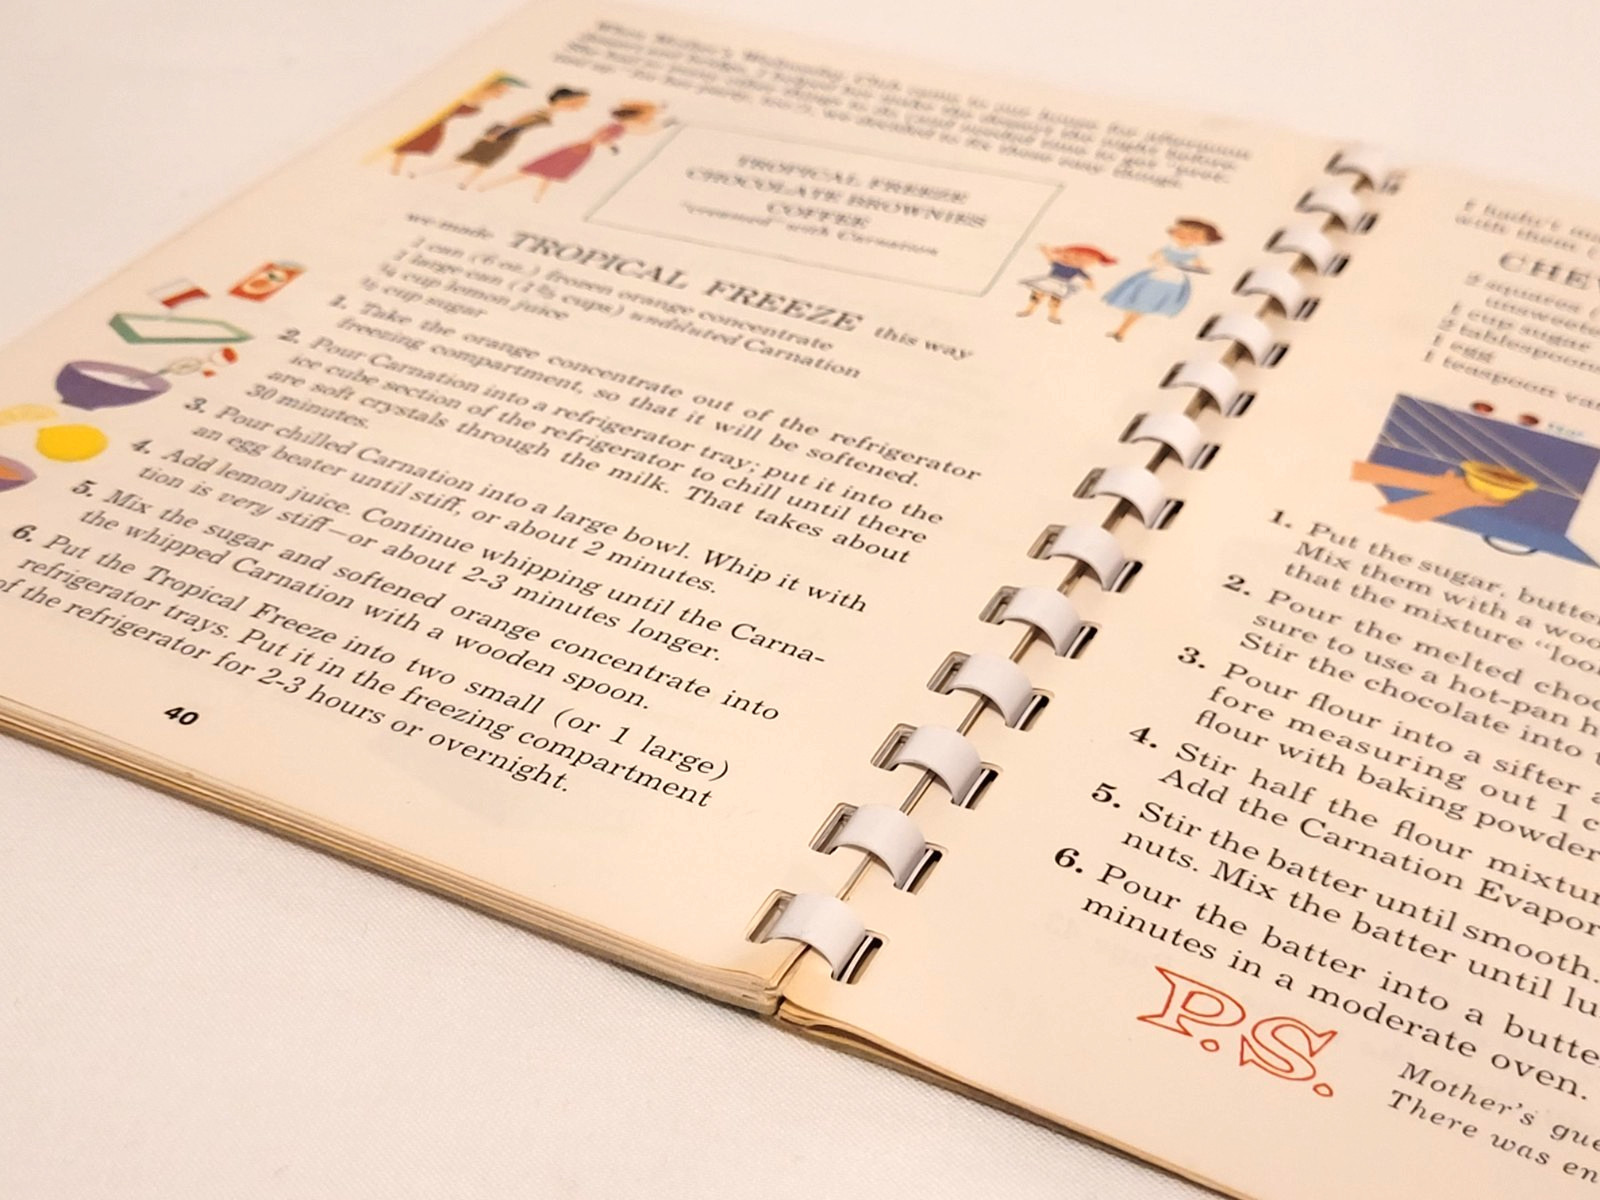 When Mother's Wednesday Club came to our house for afternoon
TROPICAL FREEZE
CHOCOLATE BROWNIES
COFFEE
"creamed" with Carnation
we made TROPICAL FREEZE this way
1 can (6 oz.) frozen orange concentrate
1 large can (1⅔ cups) undiluted Carnation
¼ cup lemon juice
½ cup sugar
1. Take the orange concentrate out of the refrigerator
freezing compartment, so that it will be softened.
2. Pour Carnation into a refrigerator tray; put it into the
ice cube section of the refrigerator to chill until there
are soft crystals through the milk. That takes about
30 minutes.
3. Pour chilled Carnation into a large bowl. Whip it with
an egg beater until stiff, or about 2 minutes.
4. Add lemon juice. Continue whipping until the Carna-
tion is very stiff—or about 2-3 minutes longer.
5. Mix the sugar and softened orange concentrate into
the whipped Carnation with a wooden spoon.
6. Put the Tropical Freeze into two small (or 1 large)
refrigerator trays. Put it in the freezing compartment
of the refrigerator for 2-3 hours or overnight.
40
with them
CHE
2 squares
1 cup sugar
1 egg
1 teaspoon
1. Put the sugar, butter
Mix them with a
that the mixture
2. Pour the melted
sure to use a hot-pan
Stir the chocolate into
3. Pour flour into a sifter
fore measuring out 1
flour with baking powder
4. Stir half the flour
Add the Carnation
5. Stir the batter until smooth.
nuts. Mix the batter until
6. Pour the batter into a
minutes in a moderate oven.
P.S.
Mother's
There was